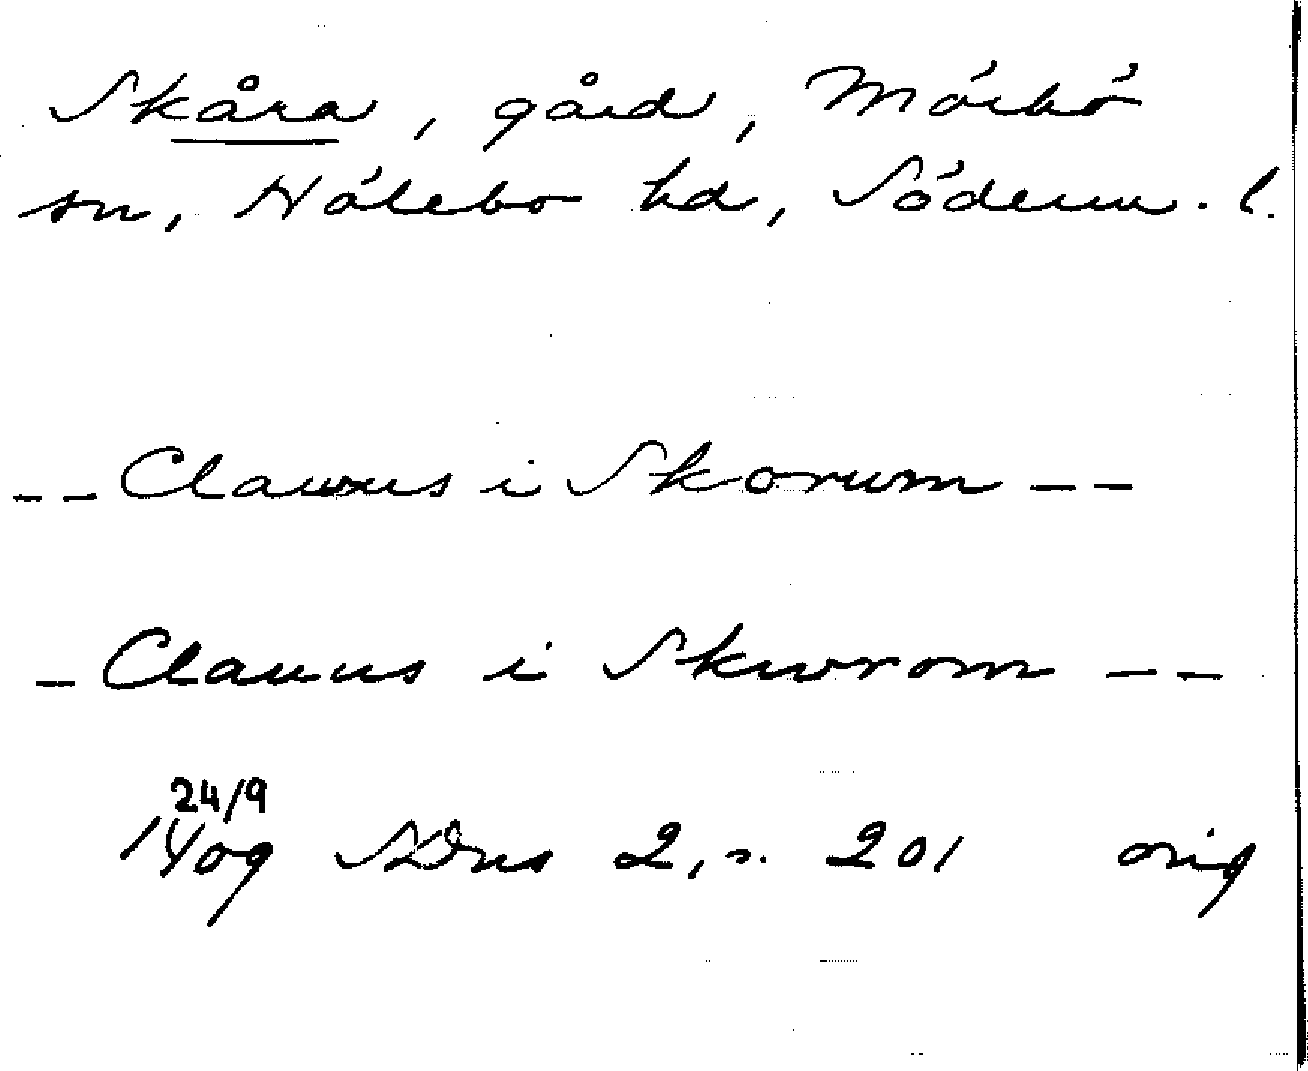 Skåra, gård, Mörbö
sn, Hölebo hd, Söderm. l.
-- Clawus i Skorum --
- Clauus i Skwrom --
24/9
1409 SDns 2, s. 201 orig